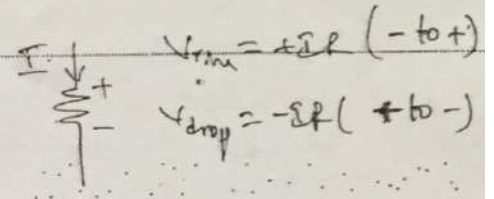 I
V_rise = +IR (- to +)
+
-
V_drop = -IR (+ to -)